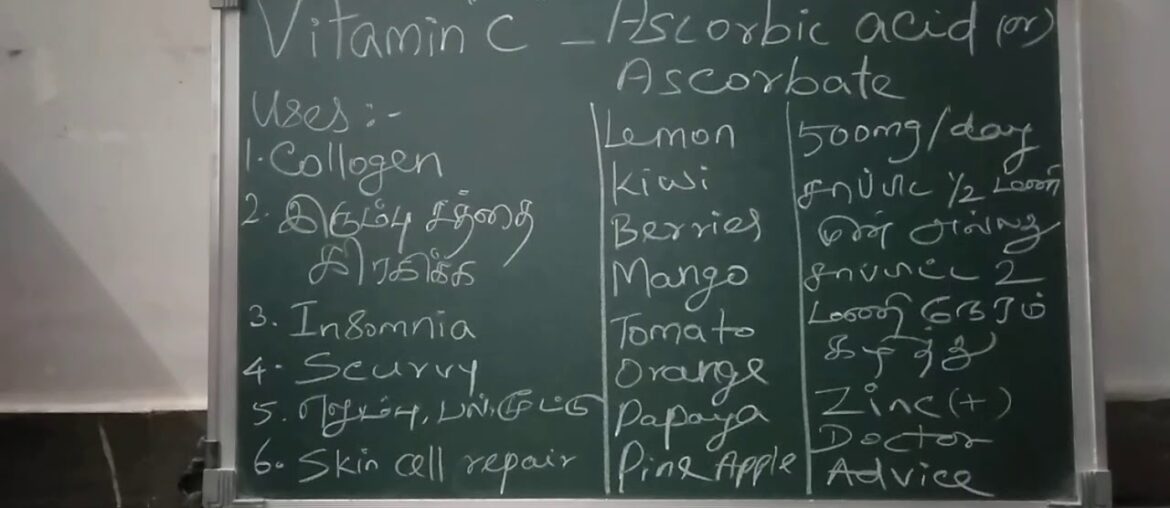 Vitamin C - Ascorbic acid (or)
Ascorbate
Uses :-
1. Collogen
2. இரும்பு சத்தை
கிரகிக்க
3. Insomnia
4. Scurvy
5. எலும்பு, பல், மூட்டு
6. Skin cell repair
Lemon
Kiwi
Berries
Mango
Tomato
Orange
Papaya
Pine Apple
500mg/day
சாப்பிட 1/2 மணி
முன் அல்லது
சாப்பிட்ட 2
மணி நேரம்
கழித்து
Zinc (+)
Doctor
Advice